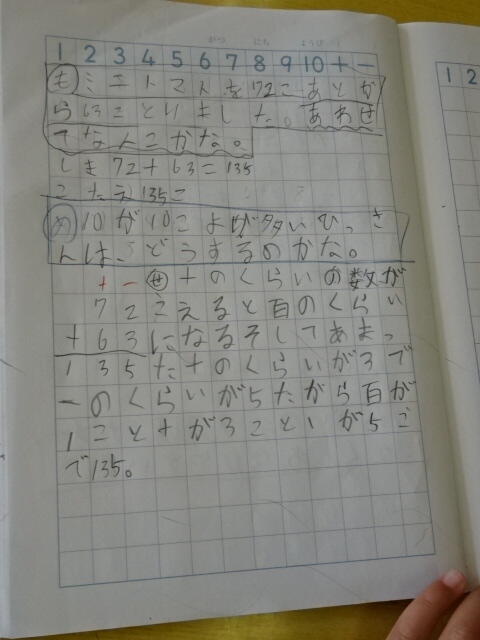 がつ にち ようび
1 2 3 4 5 6 7 8 9 10 + −
も ミニトマトを72こあとか
ら63ことりました。あわせ
てなんこかな。
しき 72+63=135
こたえ135こ
め 10が10こよりが多いひっさ
んは、どうするのかな。
+ − せ 十のくらいの数が
72 こえると百のくらい
+63 になるそしてあまっ
135 た十のくらいが3で
一のくらいが5だから百が
1こと十が3こといが5こ
で135。
1 2